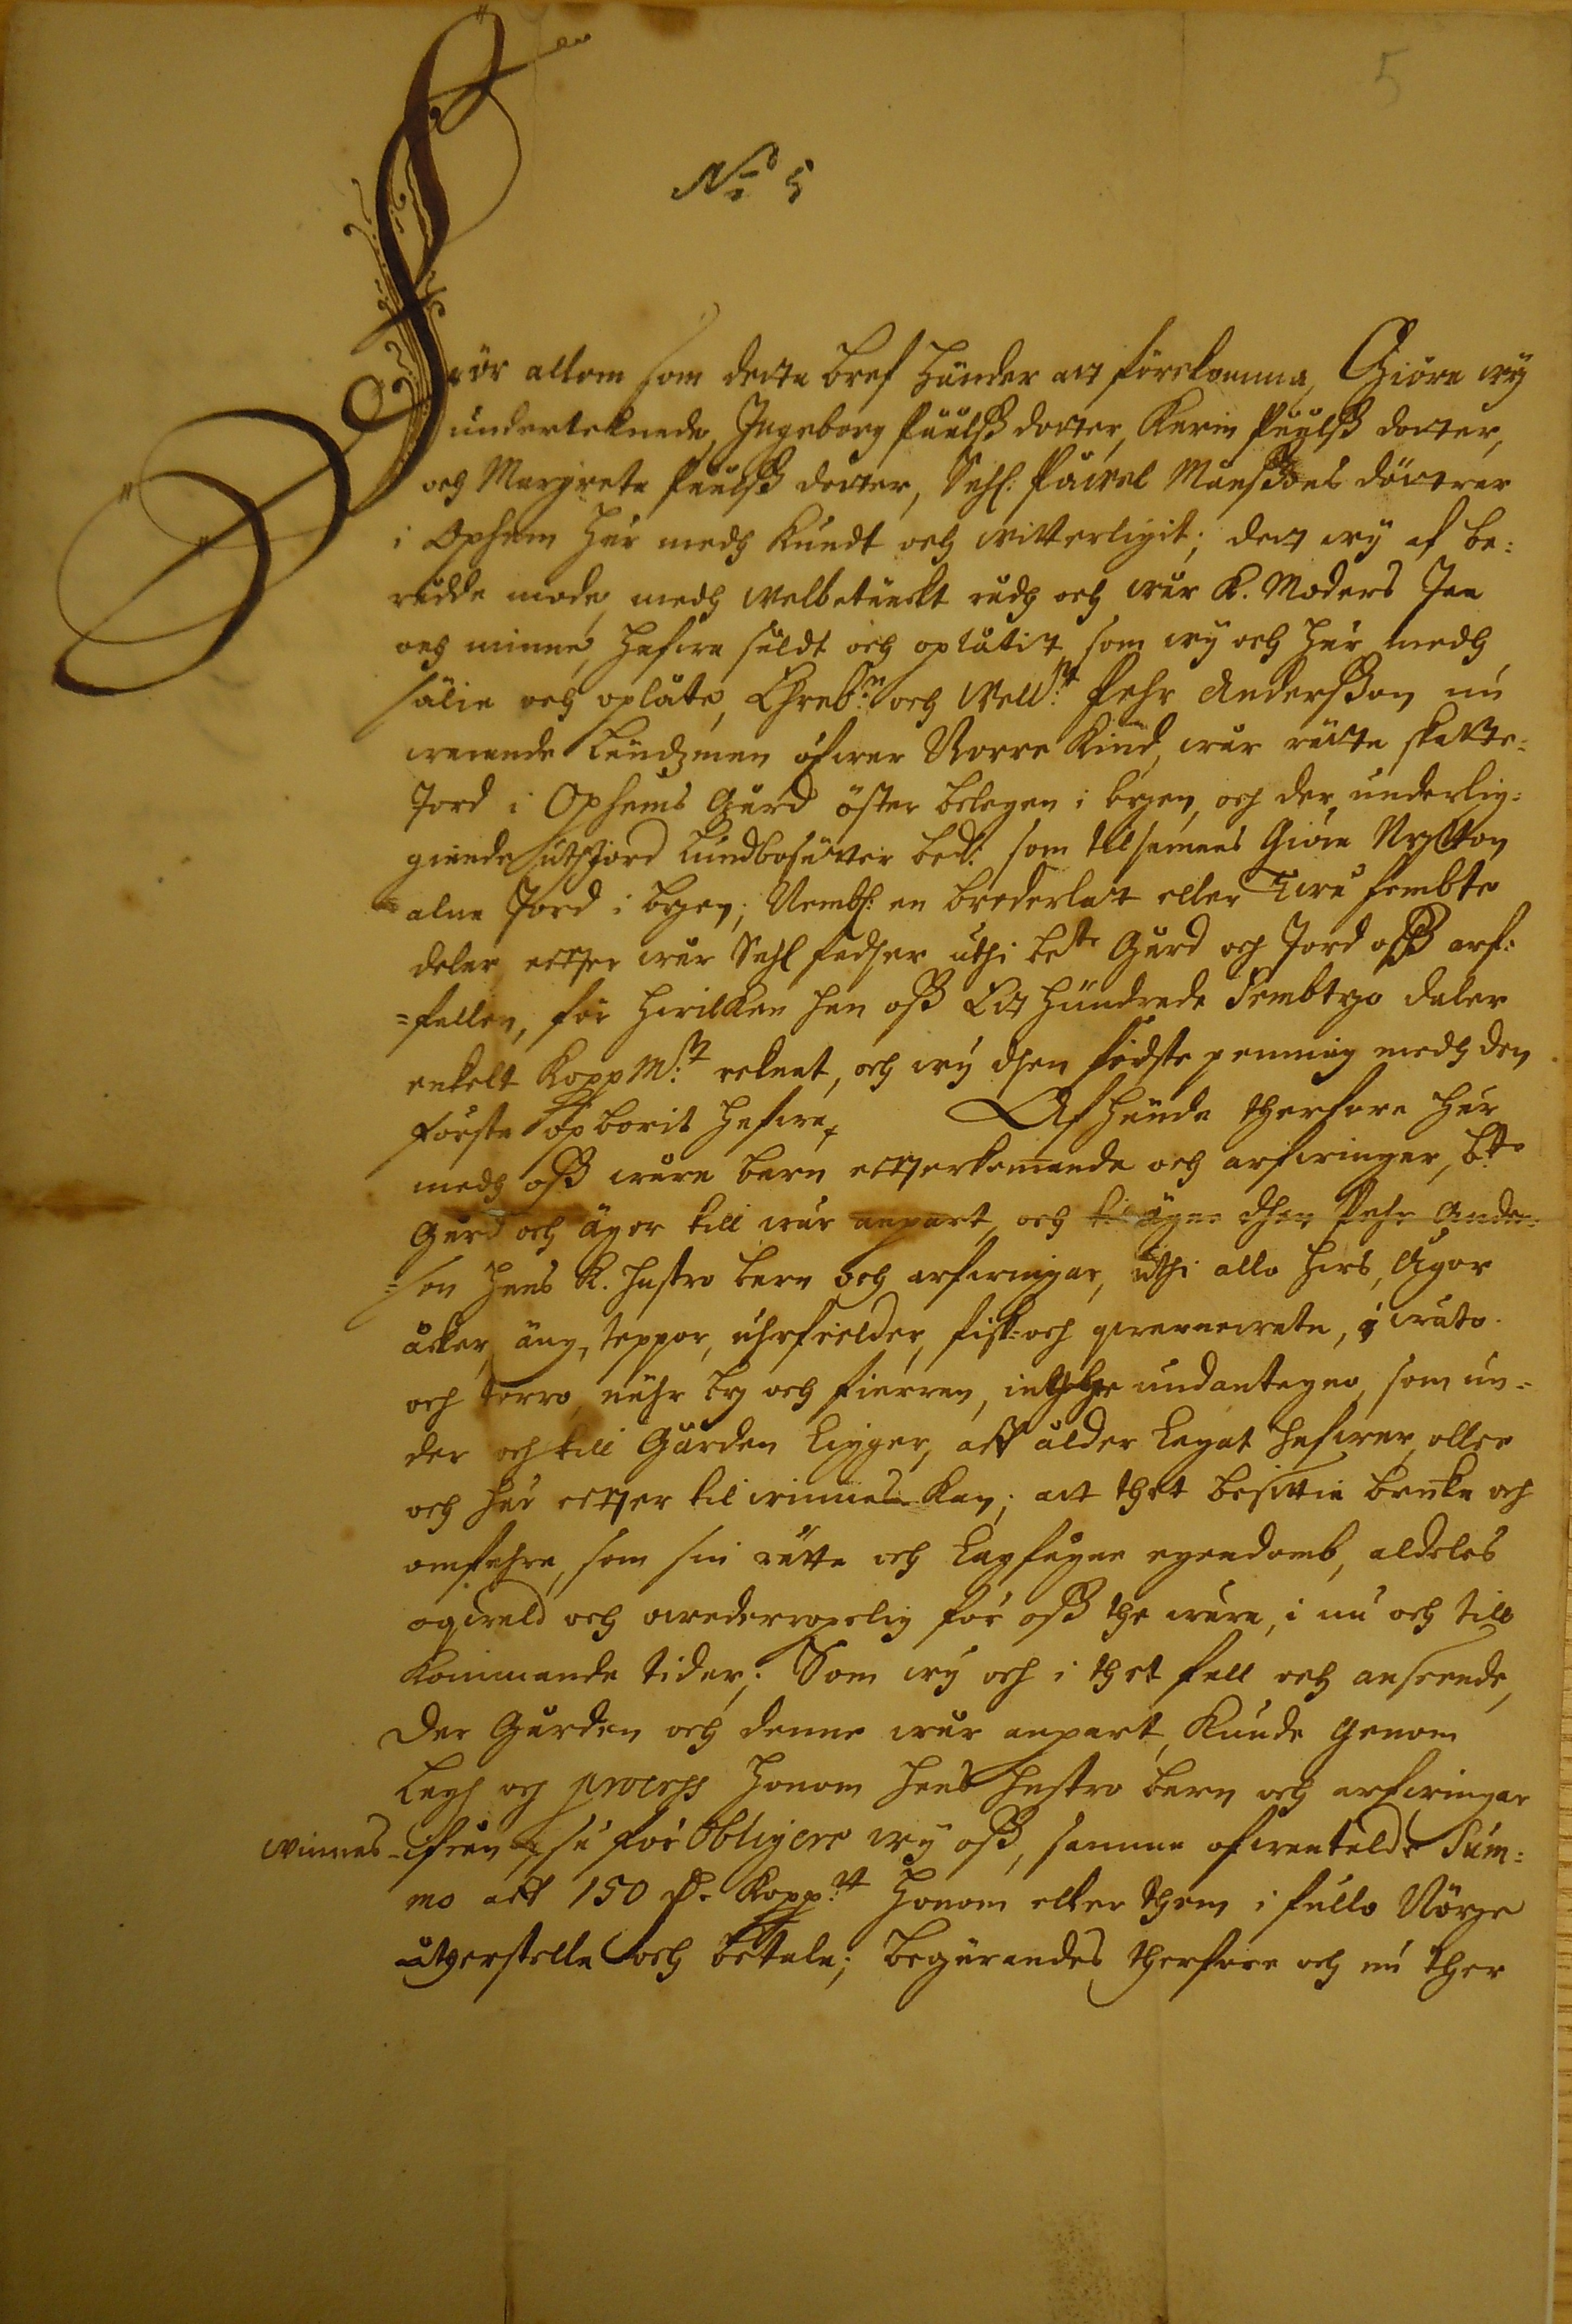 5
No 5
För allom som detta bref händer att förekomma, Giöra wÿ
underteknade, Ingeborg Påålß dotter, Karin Påålß dotter,
och Margreta Påålß dotter, Sahl: Påwel Månßons döttrar
i Ophem här medh kundt och witterligit; dett wÿ af be:
rådde mode, medh welbetänckt rådh och wår K. Moders Jaa
och minne, hafwa såldt och oplåtit, som wÿ och här medh
sälia och oplåte, Ehreb:n och Well:t Pehr Anderßon nu
warande Ländzman öfwer Norre Kind, wår rätta skatte:
Jord i Ophems Gård öster belegen i byen, och der underlig:
giande utsjord Lundbosäter bed: som tilsamans Giöra Nytton
alna Jord i byen; Nembl: en broderlott eller Twå fembte
delar efter wår Sahl fadher uthi bete Gård och Jord oß arf:
=fallen, för hwilken han oß Ett hundrade Fembtyo daler
enkelt Kopp M:t reknat, och wÿ dhen sidste penning medh den
förste opborit hafwa, Afhända therfore här
medh oß wåra barn efterkommande och arfwingar, bte
Gård och ägor till wår anpart, och til ägna dhen Pehr Ander:
=son hans K. hustro barn och arfwingar, uthi allo hws, ägor
åcker, äng, teppor, uhrfielder, fisk= och qwarnewatn, i wåto
och torro, nähr by och fierran, inthet undantagno, som un=
der och till Gården Ligger, aff ålder Legat hafwer, eller
och här efter til winnas kan; att thet besittia bruka och
omfahra, som sin rätta och Lagfågne egendomb, aldeles
oqwald och owederropelig för oß the wåra, i nu och till
kommande tider; Som wÿ och i thet fall och anseende,
der Gården och denne wår anpart, kunde genom
Lagh och process honom hans hustro barn och arfwingar
winnas ifrån, så för Obligere wÿ oß, samma ofwantalde Sum:
mo att 150 d. Kopp:tt honom eller them i fullo Nöye
återstella och betala; begärandes therfore och nu ther